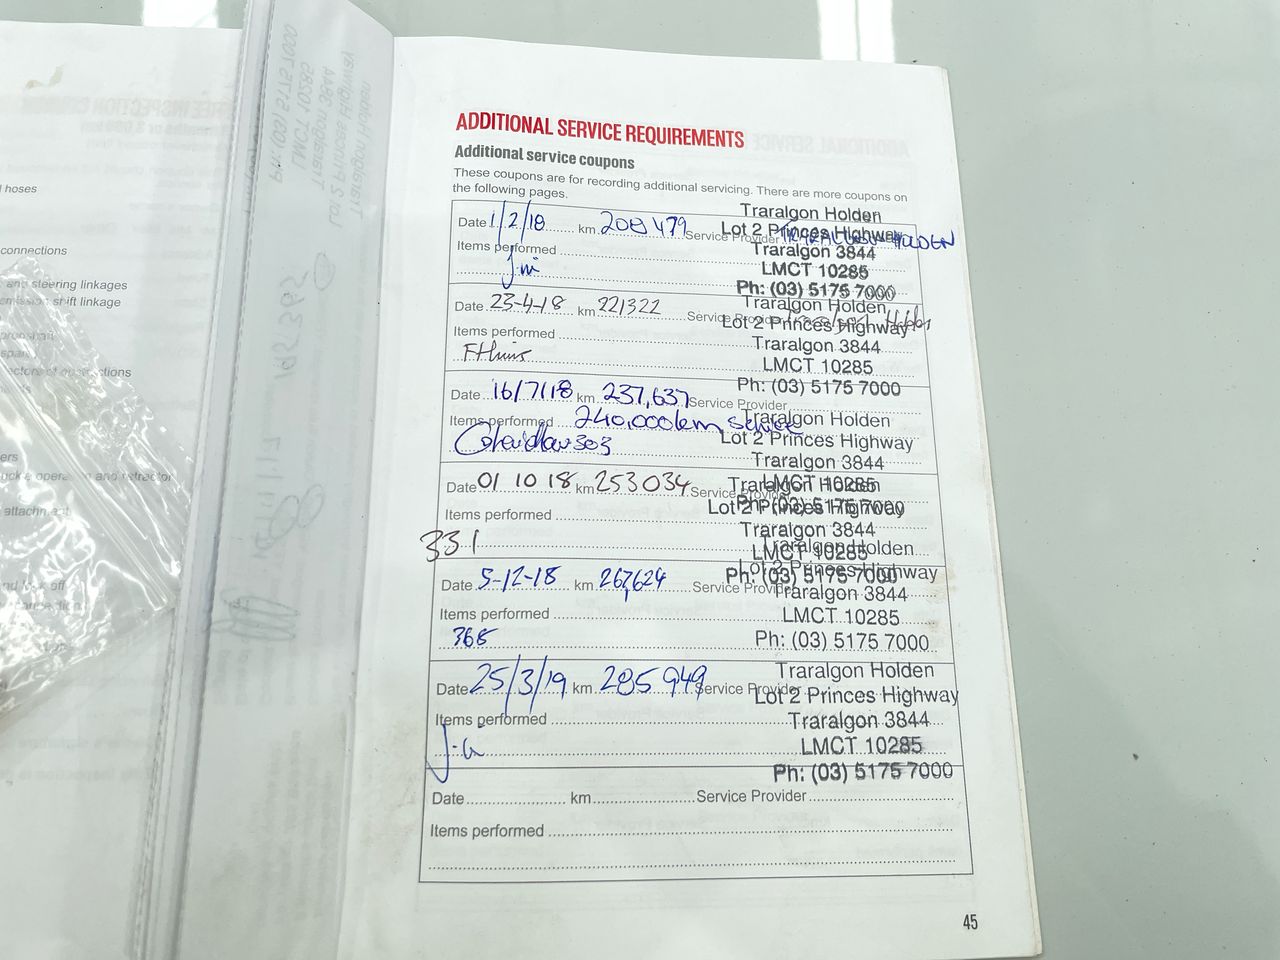 hoses
connections
and steering linkages
shift linkage
ADDITIONAL SERVICE REQUIREMENTS
Additional service coupons
These coupons are for recording additional servicing. There are more coupons on
the following pages.
Date 1/2/18 km 208479 Service Provider TRARALGON HOLDEN
Items performed
Traralgon Holden
Lot 2 Princes Highway
Traralgon 3844
LMCT 10285
Ph: (03) 5175 7000
Date 23-4-18 km 221322 Service Provider
Items performed
Traralgon Holden
Lot 2 Princes Highway
Traralgon 3844
LMCT 10285
Ph: (03) 5175 7000
Date 16/7/18 km 237,637 Service Provider
Items performed 240,000km service
Traralgon Holden
Lot 2 Princes Highway
Traralgon 3844
LMCT 10285
Ph: (03) 5175 7000
Date 01 10 18 km 253034 Service Provider
Items performed
331
Traralgon Holden
Lot 2 Princes Highway
Traralgon 3844
LMCT 10285
Ph: (03) 5175 7000
Date 5-12-18 km 267,624 Service Provider
Items performed
368
Traralgon Holden
Lot 2 Princes Highway
Traralgon 3844
LMCT 10285
Ph: (03) 5175 7000
Date 25/3/19 km 285949 Service Provider
Items performed
Traralgon Holden
Lot 2 Princes Highway
Traralgon 3844
LMCT 10285
Ph: (03) 5175 7000
Date km Service Provider
Items performed
45